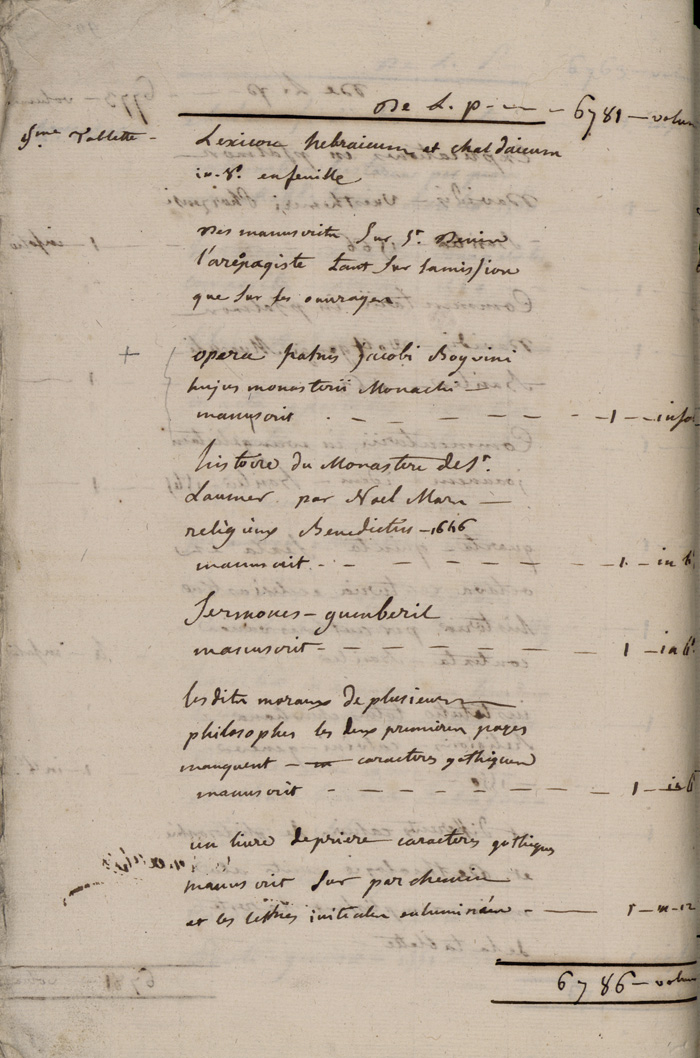 De L. p — — 6781 — volum
5eme Tablette —
Lexicon hebraicum et chaldaicum
in-8°. en feuille
des manuscrits sur St. Denin
l'aréopagiste tant sur sa mission
que sur ses ouvrages
+ opera patris jacobi Boyvini
hujus monasterii Monachi —
manuscrit . — — — — — 1 — in fo
histoire du Monastere de St.
Laumer par Noel Mars —
religieux Benedictin — 1646
manuscrit . — — — — — 1. — in 8°
Sermones — guemberil
manuscrit — — — — — — 1 — in 8°.
les dits moraux de plusieurs
philosophes les deux premieres pages
manquent — caracteres gothiques
manuscrit — — — — — — 1 — in 8
un livre de priere caracteres gothiques
manuscrit sur parchemin
et les lettres initiales enluminées — — 1 — in-12
6786 — volum